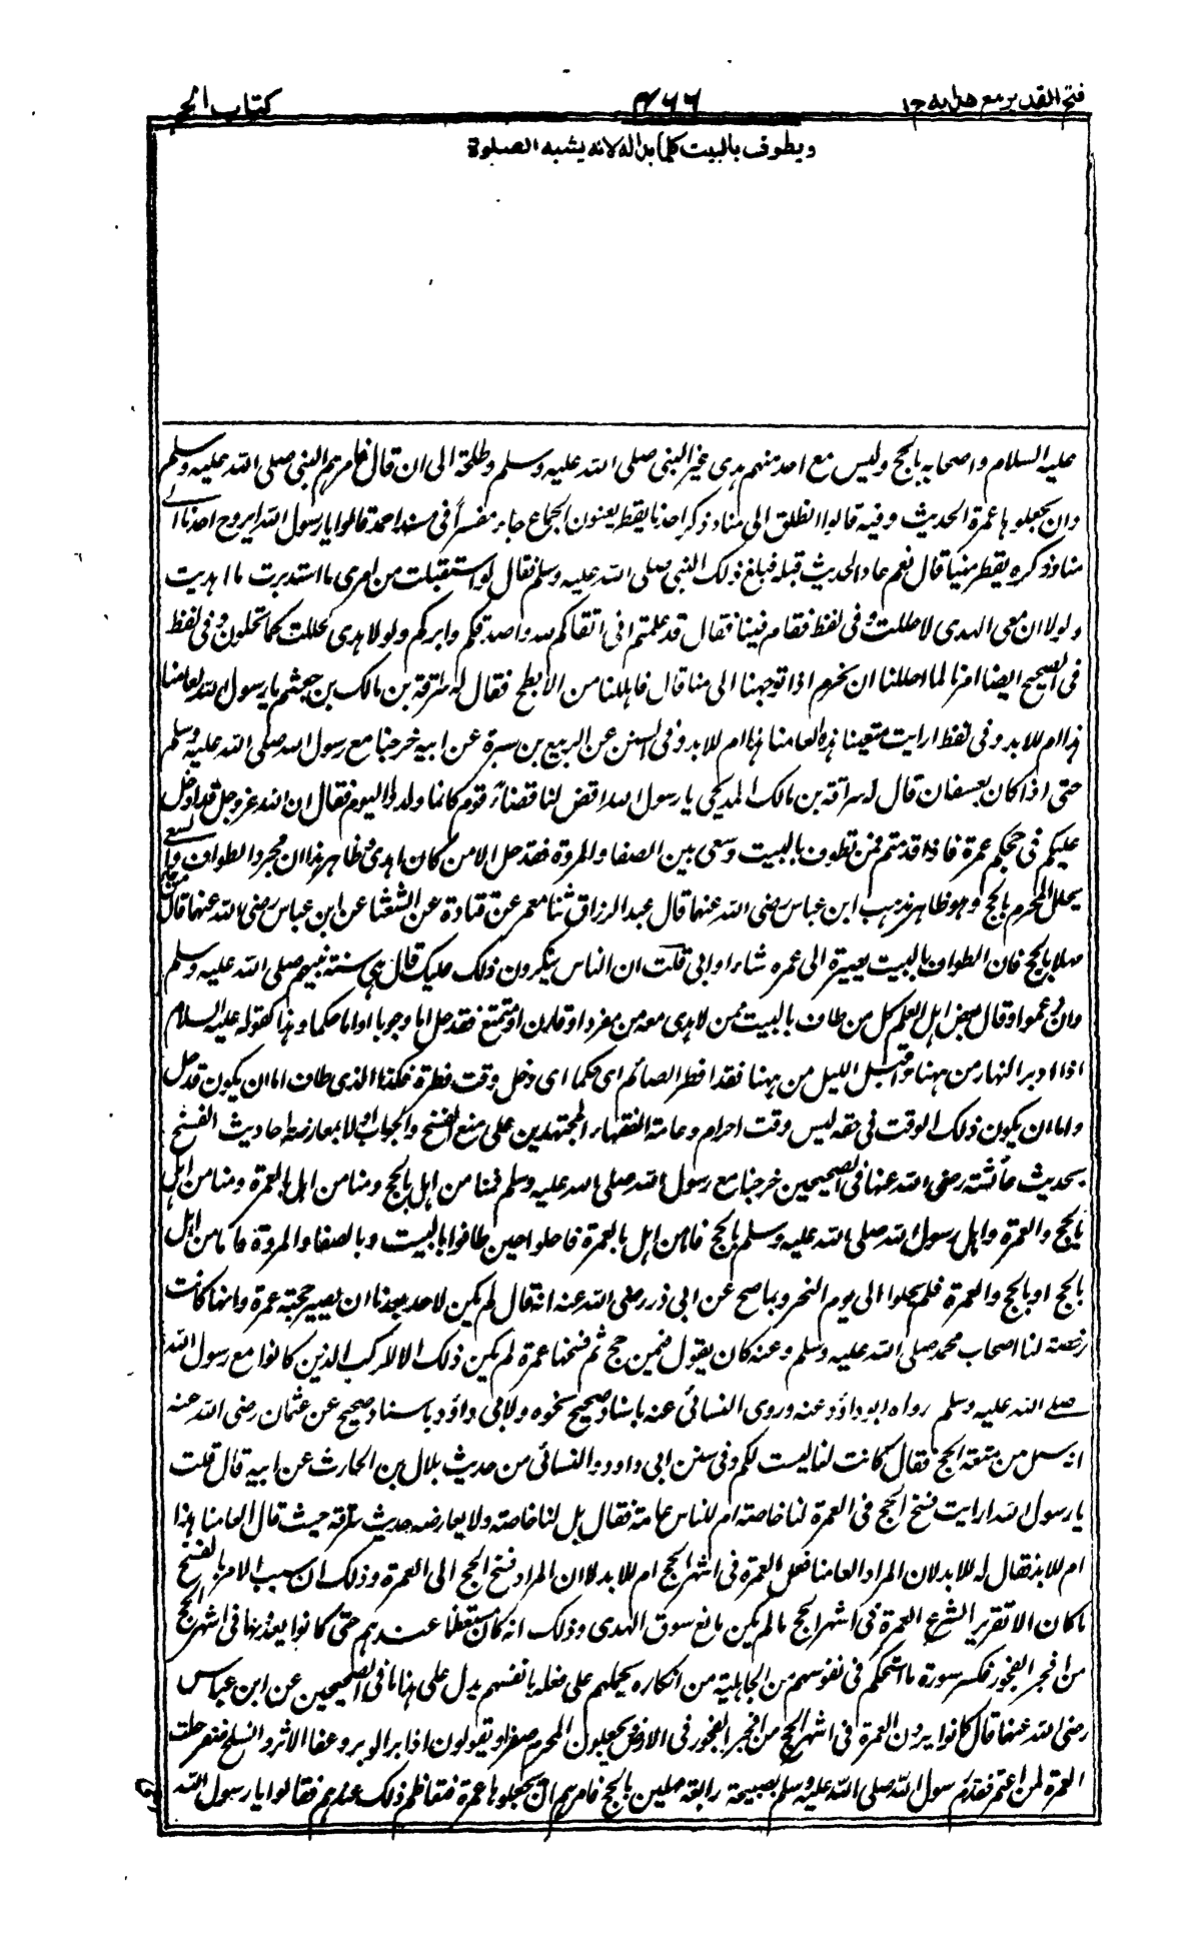 فتح القدير مع هدايه ج١
٤٦٦
كتاب الحج
ويطوف بالبيت كلما بدا له لانه يشبه الصلوة
عليه السلام واصحابه بالحج وليس مع احد منهم هدى غير النبى صلى الله عليه وسلم وطلحة الى ان قال فامرهم النبى صلى الله عليه وسلم
وان يجعلوها عمرة الحديث وفيه قالوا انطلق الى منا وذكر احدنا يقطر يعنون الجماع جاء مفسرا فى مسند احمد قالوا يا رسول الله ايروح احدنا الى
منا وذكره يقطر منيا قال نعم عاد الحديث قبله فبلغ ذلك النبى صلى الله عليه وسلم فقال لو استقبلت من امرى ما استدبرت ما اهديت
ولولا ان معى الهدى لاحللت وفى لفظ فقام فينا فقال قد علمتم انى اتقاكم لله واصدقكم وابركم ولولا هدى لحللت كما تحلون وفى لفظ
فى الصحيح ايضا امرنا لما احللنا ان نحرم اذا توجهنا الى منا قال فاهللنا من الابطح فقال له سراقة بن مالك بن جعشم يا رسول الله لعامنا
هذا ام للابد وفى لفظ ارايت متعتنا هذه العامنا هذا ام للابد وفى السنن عن الربيع بن سبرة عن ابيه خرجنا مع رسول الله صلى الله عليه وسلم
حتى اذا كان بعسفان قال له سراقة بن مالك المدلجى يا رسول الله اقض لنا قضاء قوم كانما ولدوا اليوم فقال ان الله عز وجل قد ادخل
عليكم فى حجكم عمرة فاذا قدمتم فمن تطوف بالبيت وسعى بين الصفا والمروة فقد حل الا من كان اهدى وظاهر هذا ان مجرد الطواف والسعى
يحلل المحرم بالحج وهو ظاهر مذهب ابن عباس رضى الله عنهما قال عبد الرزاق ثنا معمر عن قتادة عن الشعثا عن ابن عباس رضى الله عنهما قال من جاء
مهلا بالحج فان الطواف بالبيت يصيره الى عمره شاء او ابى قلت ان الناس ينكرون ذلك عليك قال هى سنة نبيهم صلى الله عليه وسلم
وان رغموا وقال بعض اهل العلم كل من طاف بالبيت ممن لا هدى معه من مفرد او قارن او متمتع فقد حل اما وجوبا واما حكما وهذا كقوله عليه السلام
اذا ادبر النهار من ههنا واقبل الليل من ههنا فقد افطر الصائم اى حكما اى دخل وقت فطره فكذا الذى طاف اما ان يكون قد حل
واما ان يكون ذلك الوقت فى حقه ليس وقت احرام وعامة الفقهاء المجتهدين على منع الفسخ والجواب اولا بمعارضة احاديث الفسخ
بحديث عائشة رضى الله عنها فى الصحيحين خرجنا مع رسول الله صلى الله عليه وسلم فمنا من اهل بالحج ومنا من اهل بالعمرة ومنا من اهل
بالحج والعمرة واهل رسول الله صلى الله عليه وسلم بالحج فاما من اهل بالعمرة فاحلوا حين طافوا بالبيت وبالصفا والمروة فاما من اهل
بالحج او بالحج والعمرة فلم يحلوا الى يوم النحر وبما صح عن ابى ذر رضى الله عنه انه قال لم يكن لاحد بعدنا ان يصير حجته عمرة وانها كانت
رخصة لنا اصحاب محمد صلى الله عليه وسلم وعنه كان يقول فيمن حج ثم فسخها عمرة لم يكن ذلك الا للركب الذين كانوا مع رسول الله
صلے الله عليه وسلم رواه ابو داؤد عنه وروى النسائى عنه باسناد صحيح نحوه ولابى داؤد باسناد صحيح عن عثمان رضى الله عنه
انه سئل عن متعة الحج فقال كانت لنا ليست لكم وفى سنن ابى داود والنسائى من حديث بلال بن الحارث عن ابيه قال قلت
يا رسول الله ارايت فسخ الحج فى العمرة لنا خاصة ام للناس عامة فقال بل لنا خاصة ولا يعارضه حديث سراقة حيث قال العامنا هذا
ام للابد فقال له للابد لان المراد العامنا فعل العمرة فى اشهر الحج ام للابد لا ان المراد فسخ الحج الى العمرة وذلك ان سبب الامر بالفسخ
ما كان الا تقرير الشرع العمرة فى اشهر الحج ما لم يكن مانع سوق الهدى وذلك انه كان مستعظما عندهم حتى كانوا يعدونها فى اشهر الحج
من افجر الفجور فكسر سورة ما استحكم فى نفوسهم من الجاهلية من انكاره بحملهم على فعله بانفسهم يدل على هذا ما فى الصحيحين عن ابن عباس
رضى الله عنهما قال كانوا يرون العمرة فى اشهر الحج من افجر الفجور فى الارض ويجعلون المحرم صفرا ويقولون اذا برا الدبر وعفا الاثر وانسلخ صفر حلت
العمرة لمن اعتمر فقدم رسول الله صلى الله عليه وسلم لصبيحة رابعة مهلين بالحج فامرهم ان يجعلوها عمرة فتعاظم ذلك عندهم فقالوا يا رسول الله